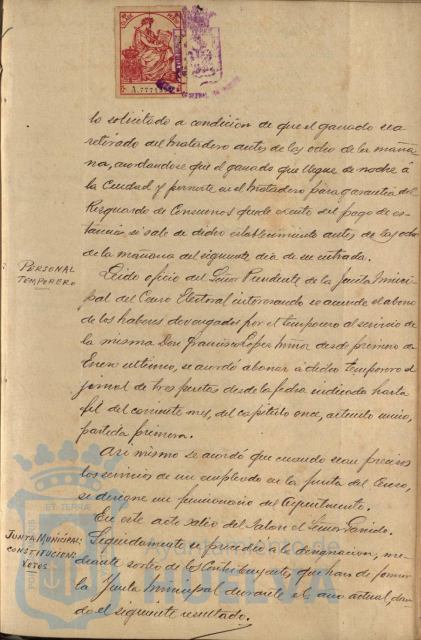 A.777
lo solicitado a condición de que el ganado sea
retirado del matadero antes de las ocho de la maña
na, acordándose que el ganado que llegue de noche á
la Ciudad y pernocte en el matadero para garantía del
Resguardo de Consumos quede exento del pago de es-
tancia, si sale de dicho establecimiento antes de las ocho
de la mañana del siguiente día de su entrada.
PERSONAL
TEMPORERO
Leido oficio del Señor Presidente de la Junta Munici-
pal del Censo Electoral interesando se acuerde el abono
de los haberes devengados por el temporero al servicio de
la misma Don Francisco López Muñoz desde primero de
Enero último, se acordó abonar á dicho temporero el
jornal de tres pesetas desde la fecha indicada hasta
fin del corriente mes, del capítulo once, artículo único,
partida primera.
Asi mismo se acordó que cuando sean precisos
los servicios de un empleado en la Junta del Censo,
se designe un funcionario del Ayuntamiento.
En este acto salió del Salon el Señor Garrido.
JUNTA MUNICIPAL:
CONSTITUCION:
VOTOS
Seguidamente se procedió a la designación, me-
diante sorteo de los Contribuyentes, que han de formar
la Junta Municipal durante el año actual, dan-
do el siguiente resultado.
ET TERRA
Ayuntamiento de
HUELVA